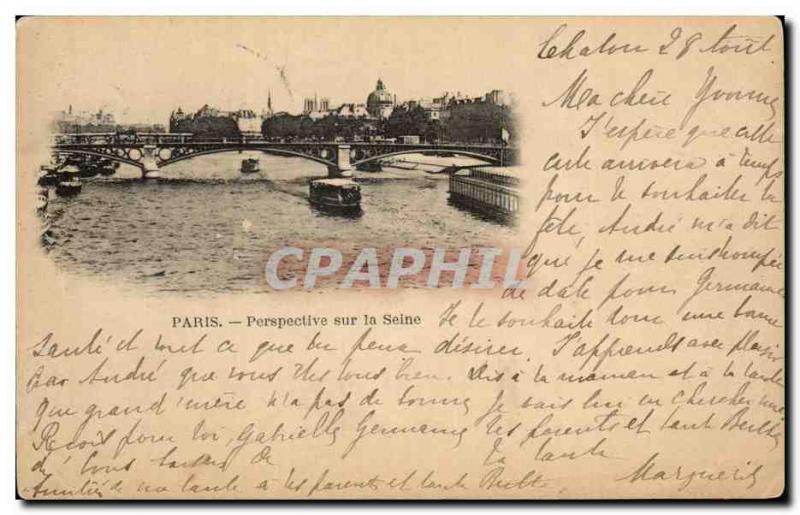 Chalon 28 Août
Ma chère Yvonne
J'espère que cette
carte arrivera à temps
pour te souhaiter ta
fête, André m'a dit
que je me suis trompée
de date pour Germaine
CPAPHIL
PARIS. — Perspective sur la Seine
Je te souhaite donc une bonne
santé et tout ce que tu peux désirer. J'apprends avec plaisir
par André que vous êtes tous bien. Dis à ta maman et à ta tante
que grand'mère n'a pas de bonne je vais lui en chercher une
Reçois pour toi, Gabrielle Germaine tes parents et tante Berthe
de tous de ta tante
Marguerite
Amitiés de ma tante à tes parents et tante Berthe